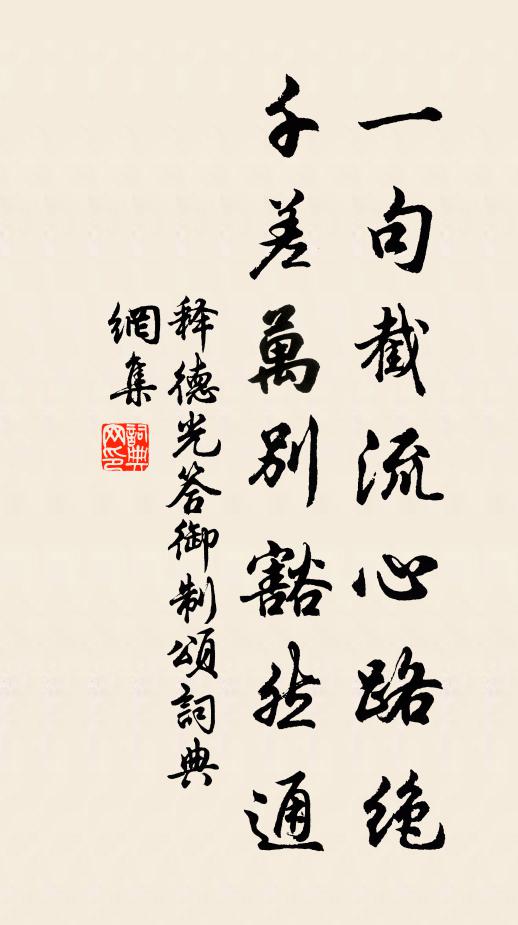 一句截流心路绝
千差萬别豁然通
释德光答御制頌詞典
網集
詞典
网印